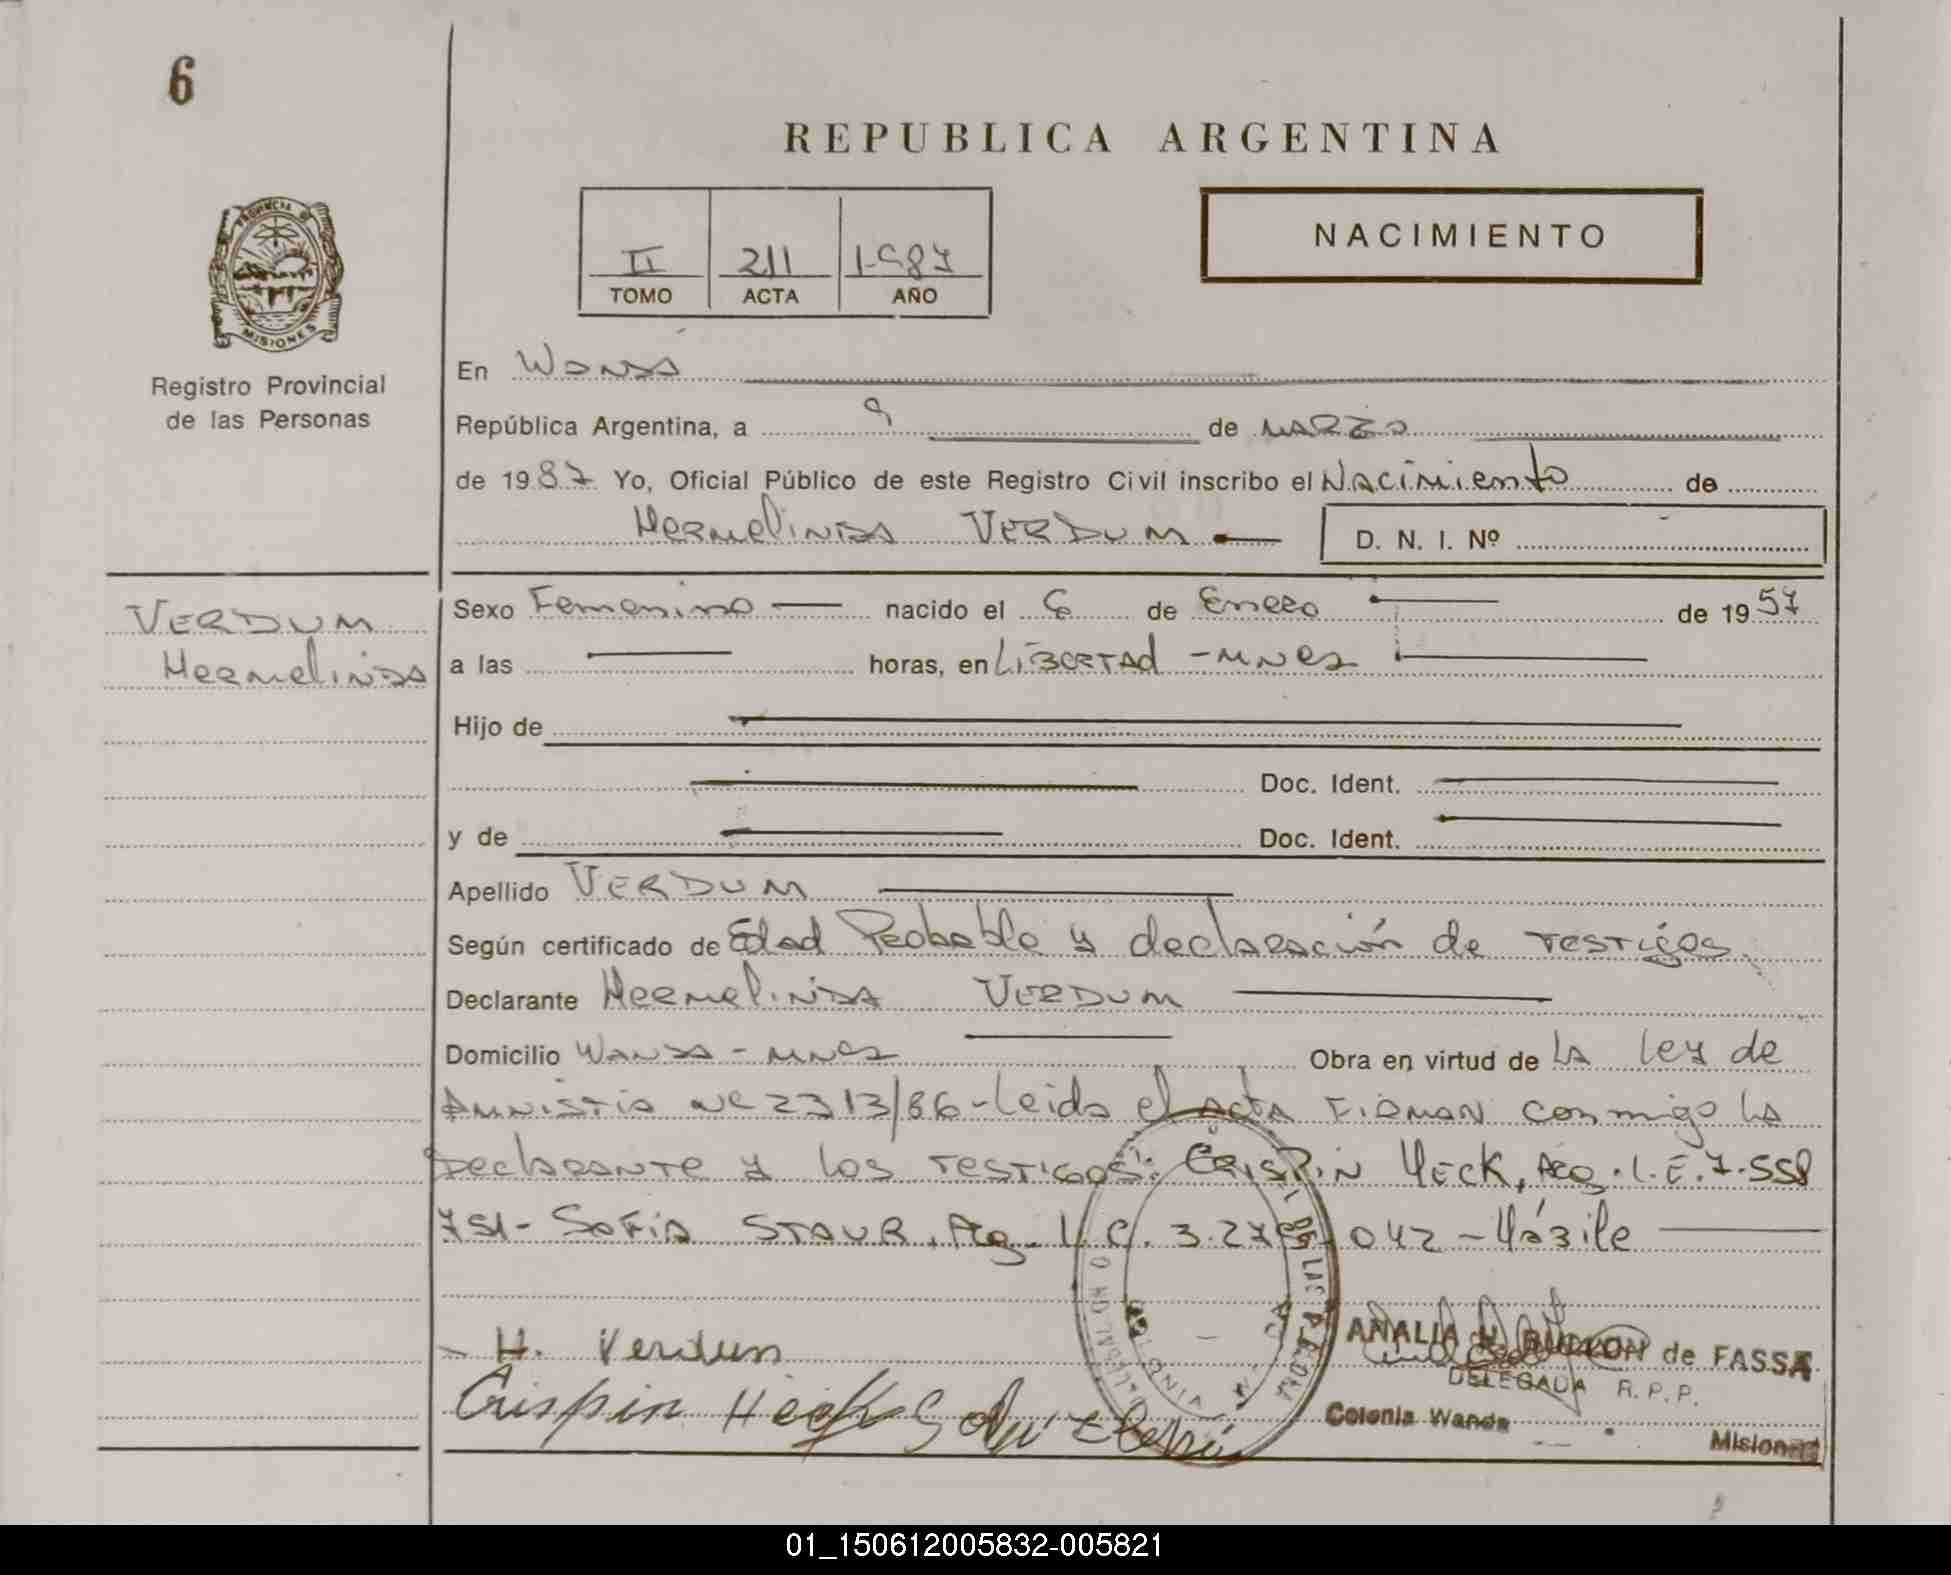 6
REPUBLICA ARGENTINA
PROVINCIA D
MISIONES
Registro Provincial
de las Personas
II 211 1987
TOMO ACTA AÑO
NACIMIENTO
En Wanda
República Argentina, a 9 de Marzo
de 1987 Yo, Oficial Público de este Registro Civil inscribo el Nacimiento de
Hermelinda VERDUM
D. N. I. Nº
VERDUM
Hermelinda
Sexo Femenino nacido el 6 de Enero de 1957
a las horas, en LiBERTAd - MNES
Hijo de
Doc. Ident.
y de Doc. Ident.
Apellido VERDUM
Según certificado de Edad Probable y declaración de testigos
Declarante Hermelinda VERDUM
Domicilio Wanda - MNES Obra en virtud de La Ley de
Amnistia Nº 2313/86 - Leida el acta firman conmigo la
declarante y los testigos: CRISPIN HECK, Arg. L.E. 7.558
751 - SOFIA STAUR, Arg. L.C. 3.27 042 - Házile
H. Verdum
Crispin Heck
ANALIA de FASSA
DELEGADA R. P. P.
Colonia Wanda
Misiones
01_150612005832-005821